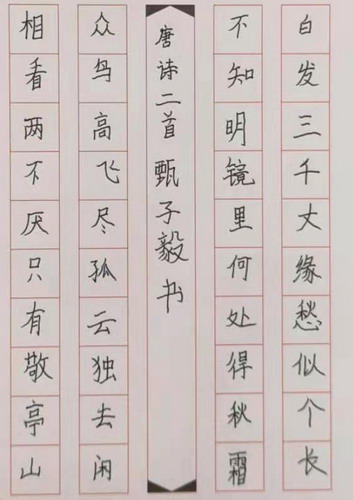 白发三千丈缘愁似个长
不知明镜里何处得秋霜
唐诗二首 甄子毅 书
众鸟高飞尽孤云独去闲
相看两不厌只有敬亭山